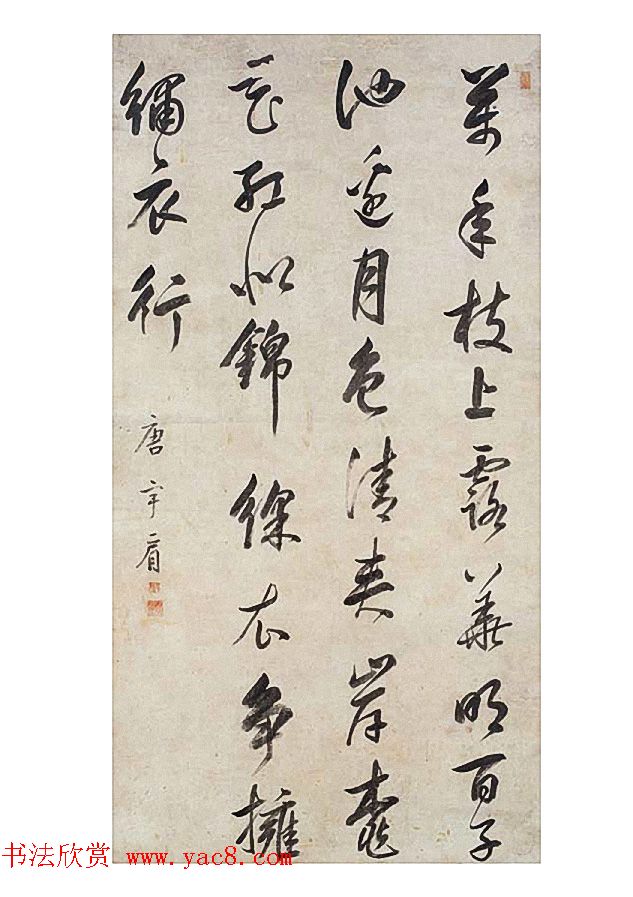 萬年枝上露華明百子
池邊月色清夾岸桃
花紅似錦緑衣争擁
繡衣行
唐宇肩
书法欣赏 www.yac8.com